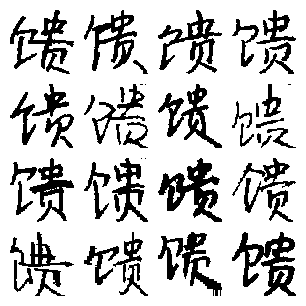 馈馈馈馈
馈馈馈馈
馈馈馈馈
馈馈馈馈